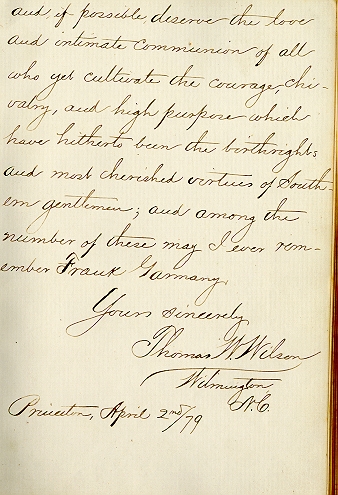 and, if possible deserve the love
and intimate communion of all
who yet cultivate the courage, chi-
valry, and high purpose which
have hitherto been the birthrights
and most cherished virtues of South-
ern gentlemen; and among the
number of these may I ever rem-
ember Frank Garmany.
Yours sincerely
Thomas W. Wilson
Wilmington
N.C.
Princeton, April 2nd/79